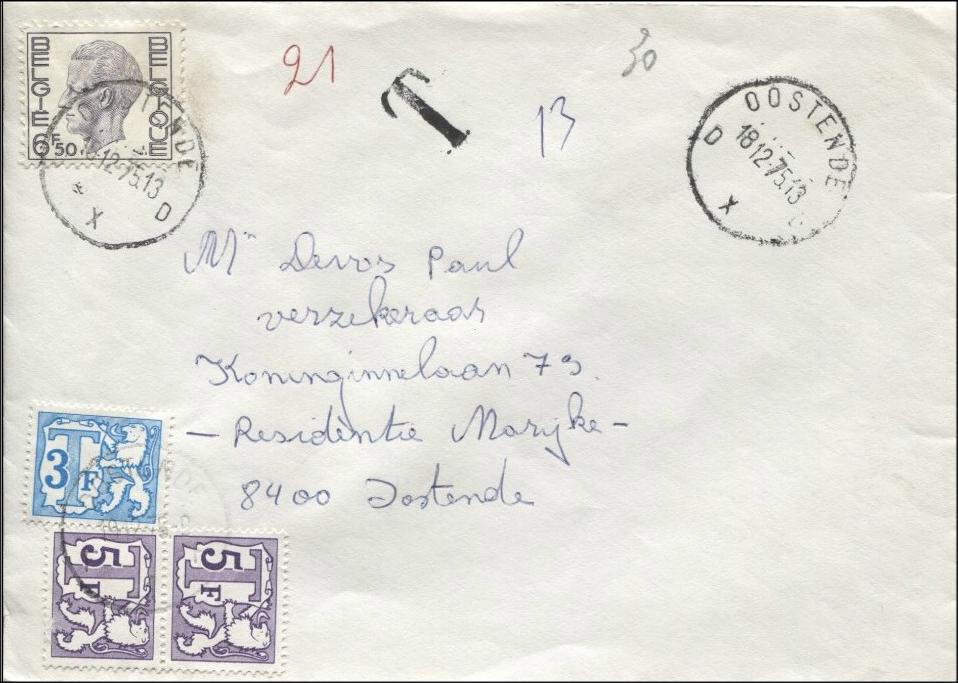 BELGIE BELGIQUE
6F50
OOSTENDE
18.12-75.13
X D
21
T
30
13
OOSTENDE
D 18.12-75.13
X
Mr Devos Paul
verzekeraar
Koninginnelaan 79.
- Residentie Marijke -
8400 Oostende
T
3 F
T
5 F
T
5 F